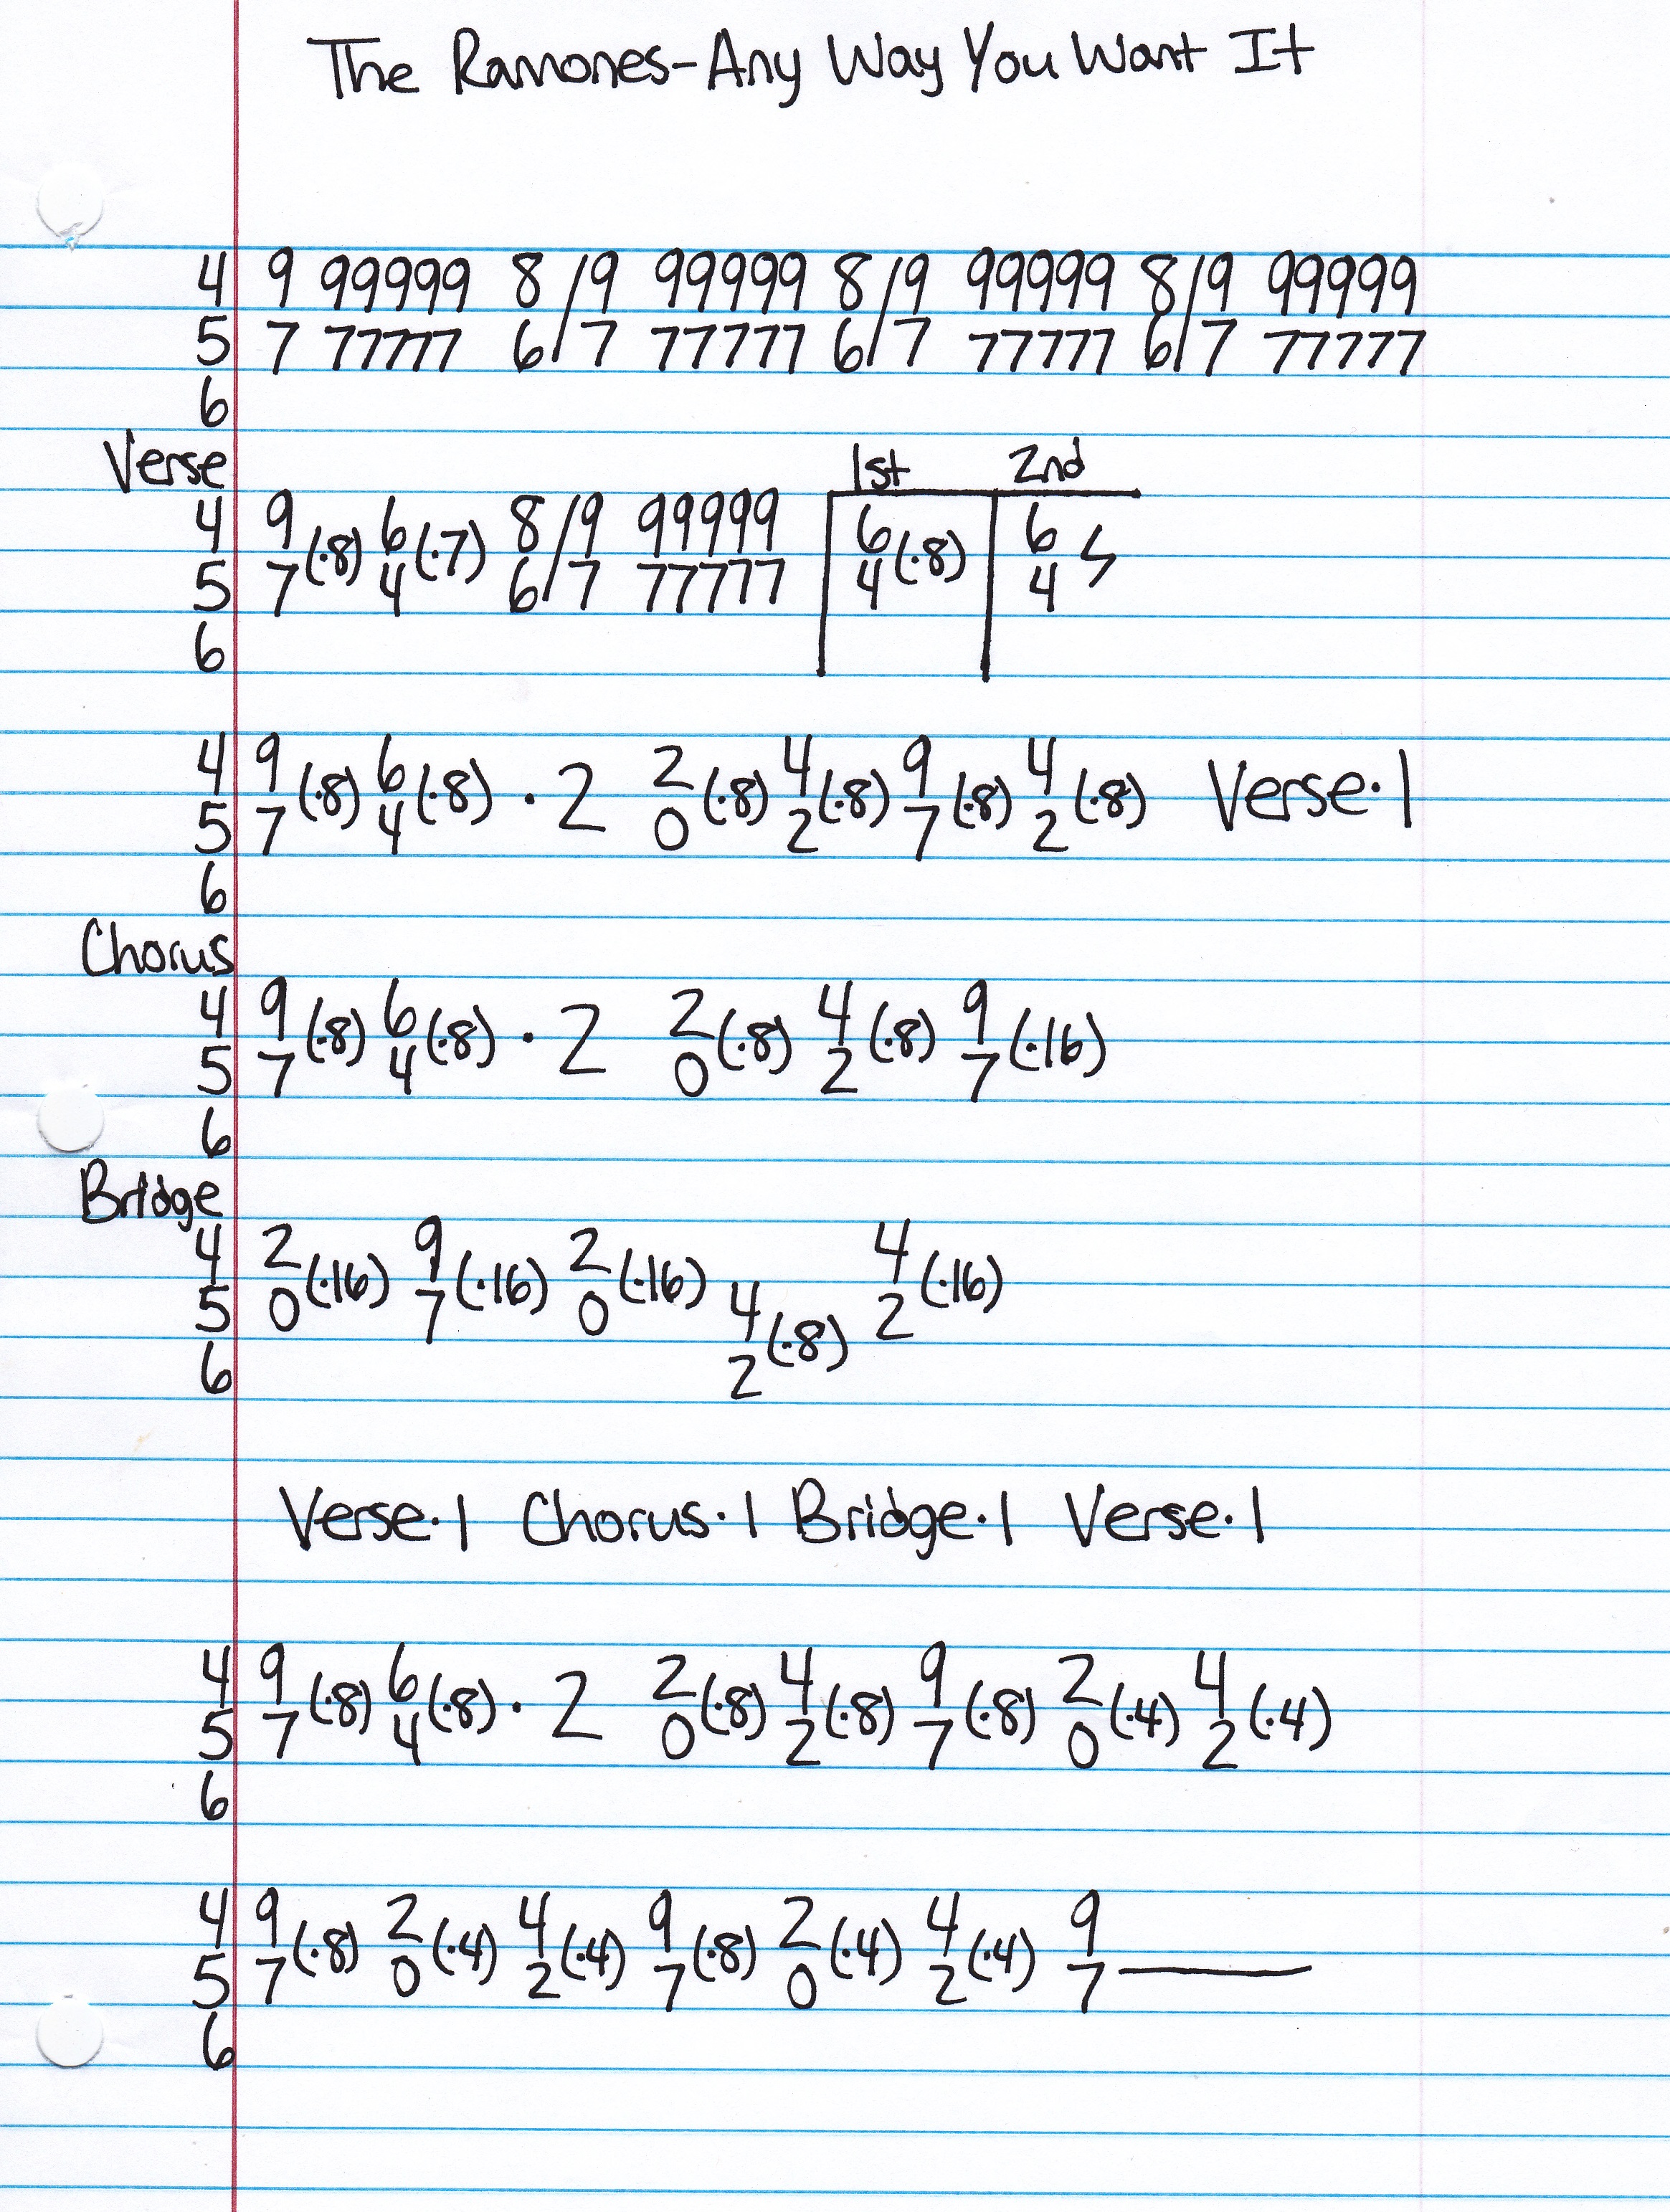 The Ramones-Any Way You Want It
4 9 99999 8/9 99999 8/9 99999 8/9 99999
5 7 77777 6/7 77777 6/7 77777 6/7 77777
6
Verse 1st 2nd
4 9(·8) 6(·7) 8/9 99999 6(·8) 6
5 7 4 6/7 77777 4 4
6
4 9(·8) 6(·8) ·2 2(·8) 4(·8) 9(·8) 4(·8) Verse·1
5 7 4 0 2 7 2
6
Chorus
4 9(·8) 6(·8) ·2 2(·8) 4(·8) 9(·16)
5 7 4 0 2 7
6
Bridge
4 2(·16) 9(·16) 2(·16) 4(·16)
5 0 7 0 4(·8) 2
6 2
Verse·1 Chorus·1 Bridge·1 Verse·1
4 9(·8) 6(·8) ·2 2(·8) 4(·8) 9(·8) 2(·4) 4(·4)
5 7 4 0 2 7 0 2
6
4 9(·8) 2(·4) 4(·4) 9(·8) 2(·4) 4(·4) 9
5 7 0 2 7 0 2 7
6